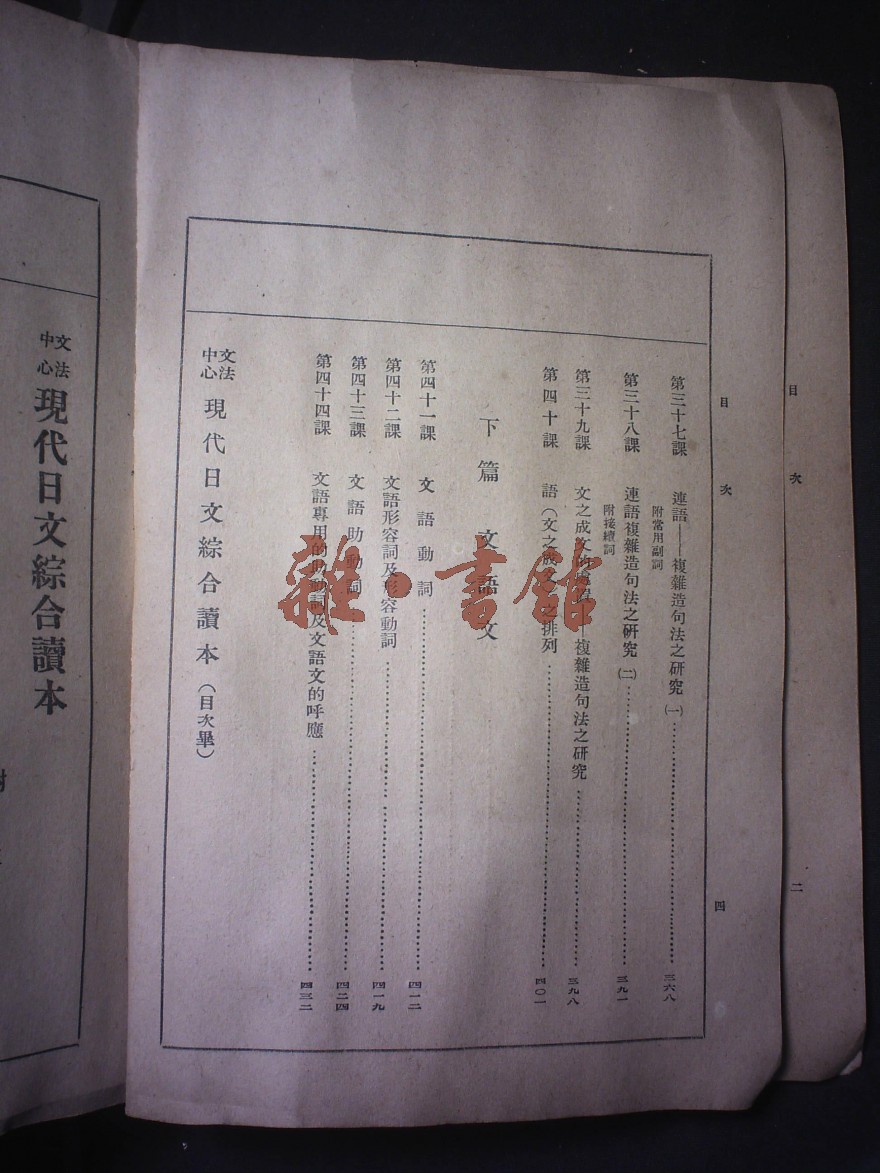 目次
二
目次
四
第三十七課 連語——複雜造句法之研究(一)……三六八
附常用副詞
第三十八課 連語複雜造句法之研究(二)……三九一
附接續詞
第三十九課 文之成文的 ——複雜造句法之研究……三九八
第四十課 語(文之成文)之排列……四〇一
下篇 文語文
第四十一課 文語動詞……四一二
第四十二課 文語形容詞及形容動詞……四一九
第四十三課 文語助動詞……四二四
第四十四課 文語專用的助動詞及文語文的呼應……四三二
文法中心 現代日文綜合讀本(目次畢)
文法中心 現代日文綜合讀本
雜·書館